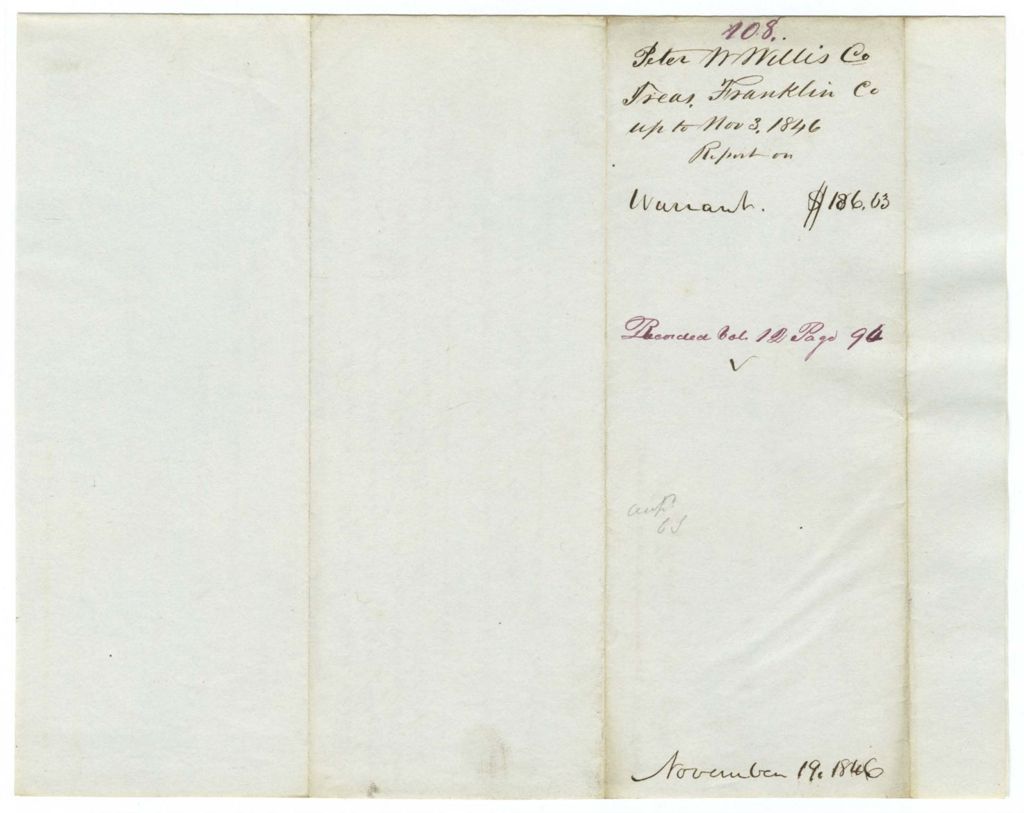 108.
Peter W Willis Co
Treas, Franklin Co
up to Nov 3, 1846
Report on
Warrant. $186,63
Recorded Vol. 12 Page 96
November 19, 1846